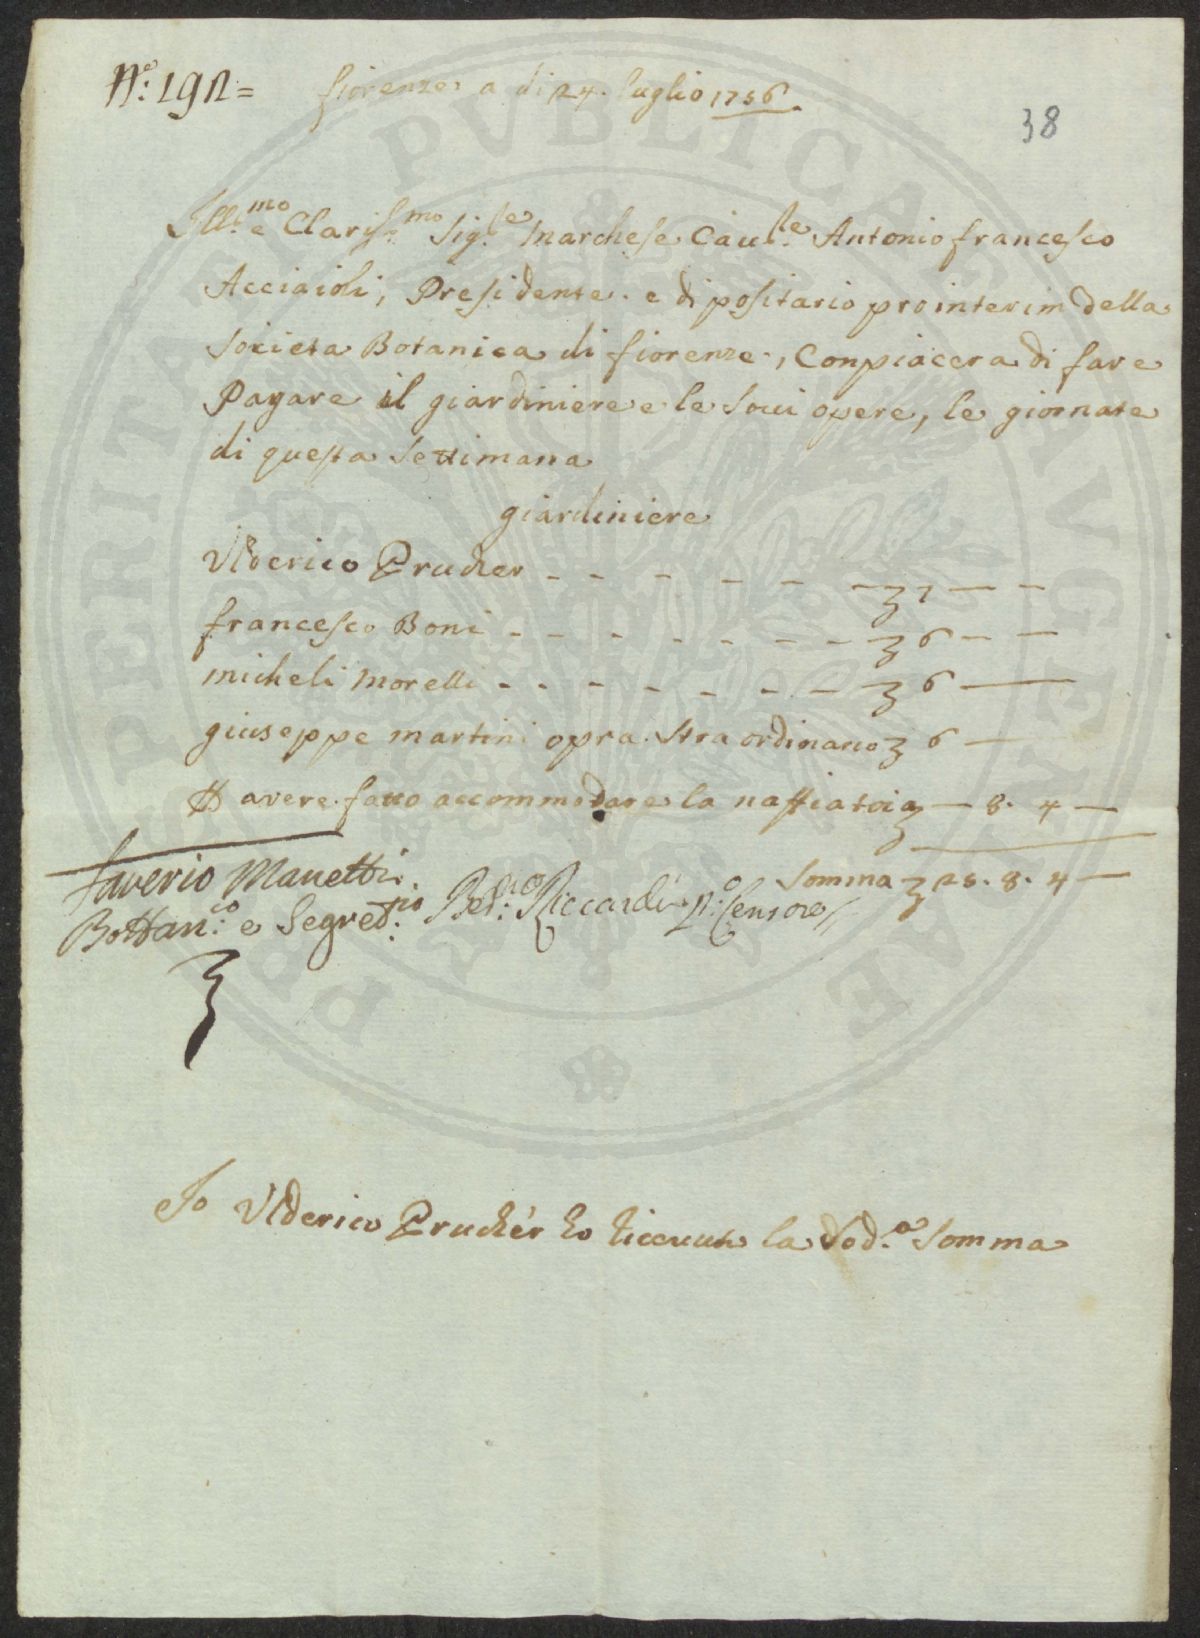 N.o: 192 =
fiorenze a di 24. luglio 1756.
38
Ill.mo e Clariss.mo Sig.le Marchese Caul.le Antonio francesco
Acciaioli, Presidente. e dipositario prointerim della
Societa Botanica di fiorenze, Conpiacera di fare
Pagare il giardiniere e le Soui opere, le giornate
di questa Settimana
giardiniere
Ulderico Prucher - - - - - — 7 — —
francesco Boni - - - - - - - — 6 — —
micheli Morelli - - - - - - - — 6 —
giuseppe martini opra. Straordinario 6 —
avere. fatto accommodare la naffiatoia — 8. 4 —
Somma 25. 8. 4 —
Saverio Manetti
Bottan.co e Segret.rio
Ber.do Riccardi P.o Censore
Io Ulderico Pruchér ho riceuuto la Sod.a Somma
PERITAE PVBLICAE AVGENDAE